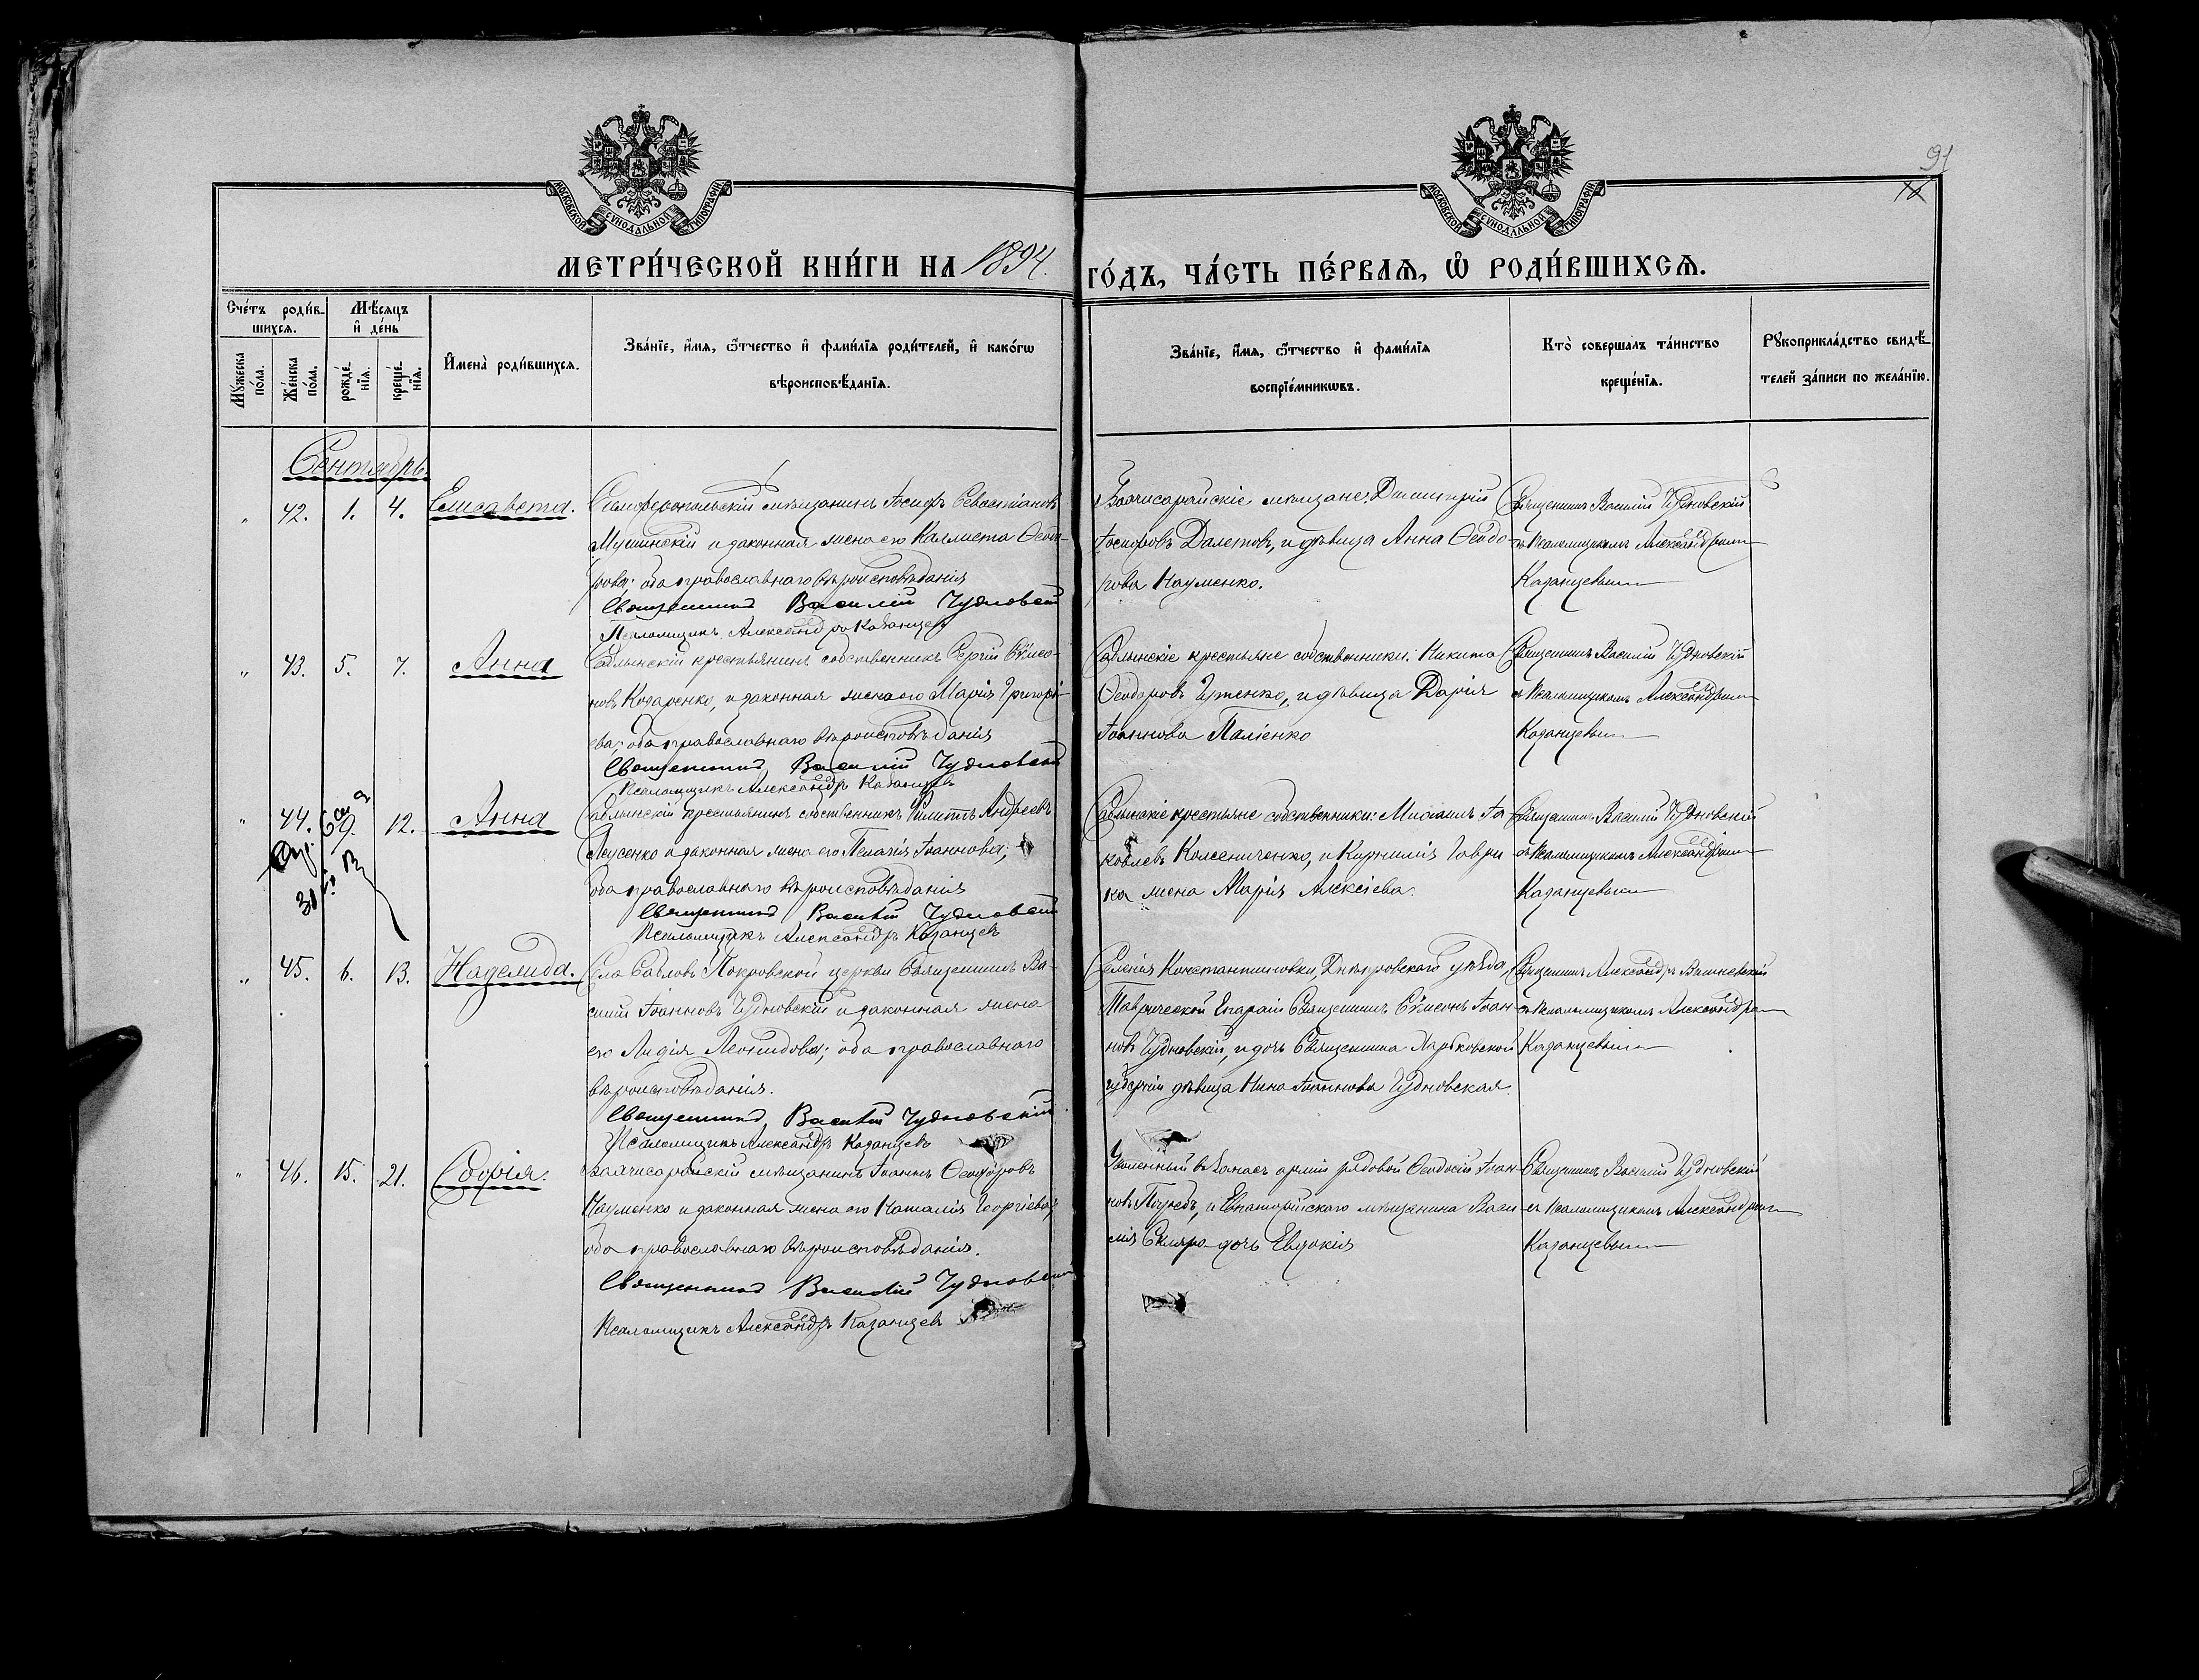 МОСКОВСКОЙ СѴНОДАЛЬНОЙ ТИПОГРАФІИ
МОСКОВСКОЙ СѴНОДАЛЬНОЙ ТИПОГРАФІИ
91
МЕТРИ́ЧЕСКОЙ КНИ́ГИ НА 1894. ГО́ДЪ, ЧА́СТЬ ПЕ́РВАѦ, Ѽ РОДИ́ВШИХСѦ.
Сче́тъ роди́в-
шихсѧ.
Мѣ́сѧцъ
и҆ де́нь
Мꙋ́жеска
по́ла.
Же́нска
по́ла.
рожде́-
нїѧ.
креще́-
нїѧ.
И҆мена̀ роди́вшихсѧ.
Зва́нїе, и҆́мѧ, ѻ҆́тчество и҆ фами́лїѧ роди́телей, и҆ како́гѡ
вѣроисповѣ́данїѧ.
Зва́нїе, и҆́мѧ, ѻ҆́тчество и҆ фами́лїѧ
воспрїе́мникѡвъ.
Кто̀ соверша́лъ та́инство
креще́нїѧ.
Рꙋкоприкла́дство свидѣ́-
телей за́писи по жела́нїю.
Сентябрь.
" 42. 1. 4. Елисавета.
Симферопольскій мѣщанинъ Іосифъ Севастіановъ
Мушинскій и законная жена его Каллиста Ѳеодо-
рова; оба православнаго вѣроисповѣданія
Священникъ Василій Чудновскій
Псаломщикъ Александръ Казанцевъ
Бахчисарайскіе мѣщане: Димитрій
Іосифовъ Далетовъ, и дѣвица Анна Ѳеодо-
рова Науменко.
Священникъ Василій Чудновскій
съ Псаломщикомъ Александромъ
Казанцевымъ
" 43. 5. 7. Анна
Саблынскій крестьянинъ собственникъ Сергій Сѵмео-
новъ Кодаренко, и законная жена его Марія Григорі-
ева; оба православнаго вѣроисповѣданія
Священникъ Василій Чудновскій
Псаломщикъ Александръ Казанцевъ
Саблынскіе крестьяне собственники: Никита
Ѳеодоровъ Ищенко, и дѣвица Дарія
Іоаннова Паліенко
Священникъ Василій Чудновскій
съ Псаломщикомъ Александромъ
Казанцевымъ
" 44. 9. 12. Анна
Саблынскій крестьянинъ собственникъ Филиппъ Андреевъ
Яусенко и законная жена его Пелагія Іоаннова;
оба православнаго вѣроисповѣданія
Священникъ Василій Чудновскій
Псаломщикъ Александръ Казанцевъ
Саблынскіе крестьяне собственники: Михаилъ Іа-
ковлевъ Колесниченко, и Корнилія Гаври
ка жена Марія Алексіева.
Священникъ Василій Чудновскій
съ Псаломщикомъ Александромъ
Казанцевымъ
" 45. 6. 13. Надежда.
Села Сабловъ Покровской церкви Священникъ Ва-
силій Іоанновъ Чудновскій и законная жена
его Лидія Леонидова; оба православнаго
вѣроисповѣданія.
Священникъ Василій Чудновскій
Псаломщикъ Александръ Казанцевъ
Селенія Константиновки, Днѣпровскаго уѣзда,
Таврической Епархіи Священникъ Сѵмеонъ Іоан-
новъ Чудновскій, и дочь Священника Харьковской
губерніи дѣвица Нина Іоаннова Чудновская.
Священникъ Александръ Вишневскій
съ Псаломщикомъ Александромъ
Казанцевымъ
" 46. 15. 21. Софія.
Бахчисарайскій мѣщанинъ Іоаннъ Ѳеодоровъ
Науменко и законная жена его Наталія Георгіева;
оба православнаго вѣроисповѣданія.
Священникъ Василій Чудновскій
Псаломщикъ Александръ Казанцевъ
Уволенный въ запасъ арміи рядовой Ѳеодосій Іоан-
новъ и Евпаторійскаго мѣщанина Васи-
лія Скляра дочь Евдокія
Священникъ Василій Чудновскій
съ Псаломщикомъ Александромъ
Казанцевымъ